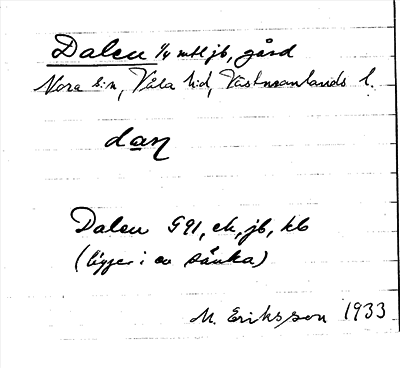 Dalen 1/4 mtl jb, gård
Nora s:n, Våla hd, Västmanlands l.
dan
Dalen G91, ek, jb, kb
(ligger i en sänka)
M. Eriksson 1933